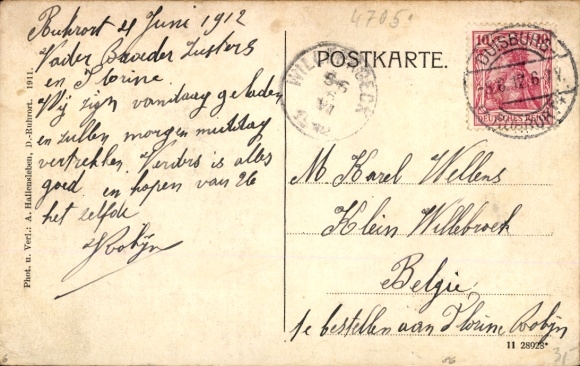 Ruhrort 4 Juni 1912
Vader Broeder Zusters
en Florine
Wij zijn vandaag geladen
en zullen morgen middag
vertrekken. Verders is alles
goed en hopen van
het zelfde
Robijn
Phot. u. Verl.: A. Hallensleben, D.-Ruhrort. 1911.
4705.
POSTKARTE.
WILLEBROECK
10 10
DEUTSCHES REICH
DUISBURG
RUHRORT
M Karel Wellens
Klein Willebroek
België
te bestellen aan Florine Robijn
11 28928*